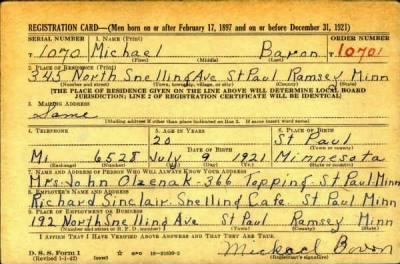 REGISTRATION CARD—(Men born on or after February 17, 1897 and on or before December 31, 1921)
SERIAL NUMBER 1. NAME (Print) ORDER NUMBER
T 1070 Michael Baron T10701
(First) (Middle) (Last)
2. PLACE OF RESIDENCE (Print)
345 North Snelling Ave St Paul Ramsey Minn
(Number and street) (Town, township, village, or city) (County) (State)
[THE PLACE OF RESIDENCE GIVEN ON THE LINE ABOVE WILL DETERMINE LOCAL BOARD
JURISDICTION; LINE 2 OF REGISTRATION CERTIFICATE WILL BE IDENTICAL]
3. MAILING ADDRESS
Same
[Mailing address if other than place indicated on line 2. If same insert word same]
4. TELEPHONE 5. AGE IN YEARS 6. PLACE OF BIRTH
20 St Paul
DATE OF BIRTH (Town or county)
Mi 6528 July 9 1921 Minnesota
(Exchange) (Number) (Mo.) (Day) (Yr.) (State or country)
7. NAME AND ADDRESS OF PERSON WHO WILL ALWAYS KNOW YOUR ADDRESS
Mrs. John 366 Topping St. Paul Minn
8. EMPLOYER'S NAME AND ADDRESS
Richard Sinclair. Snelling Cafe. St Paul Minn
9. PLACE OF EMPLOYMENT OR BUSINESS
192 North Snelling Ave St Paul Ramsey Minn
(Number and street or R. F. D. number) (Town) (County) (State)
I AFFIRM THAT I HAVE VERIFIED ABOVE ANSWERS AND THAT THEY ARE TRUE.
D. S. S. Form 1
(Revised 1-1-42) GPO Michael Baron